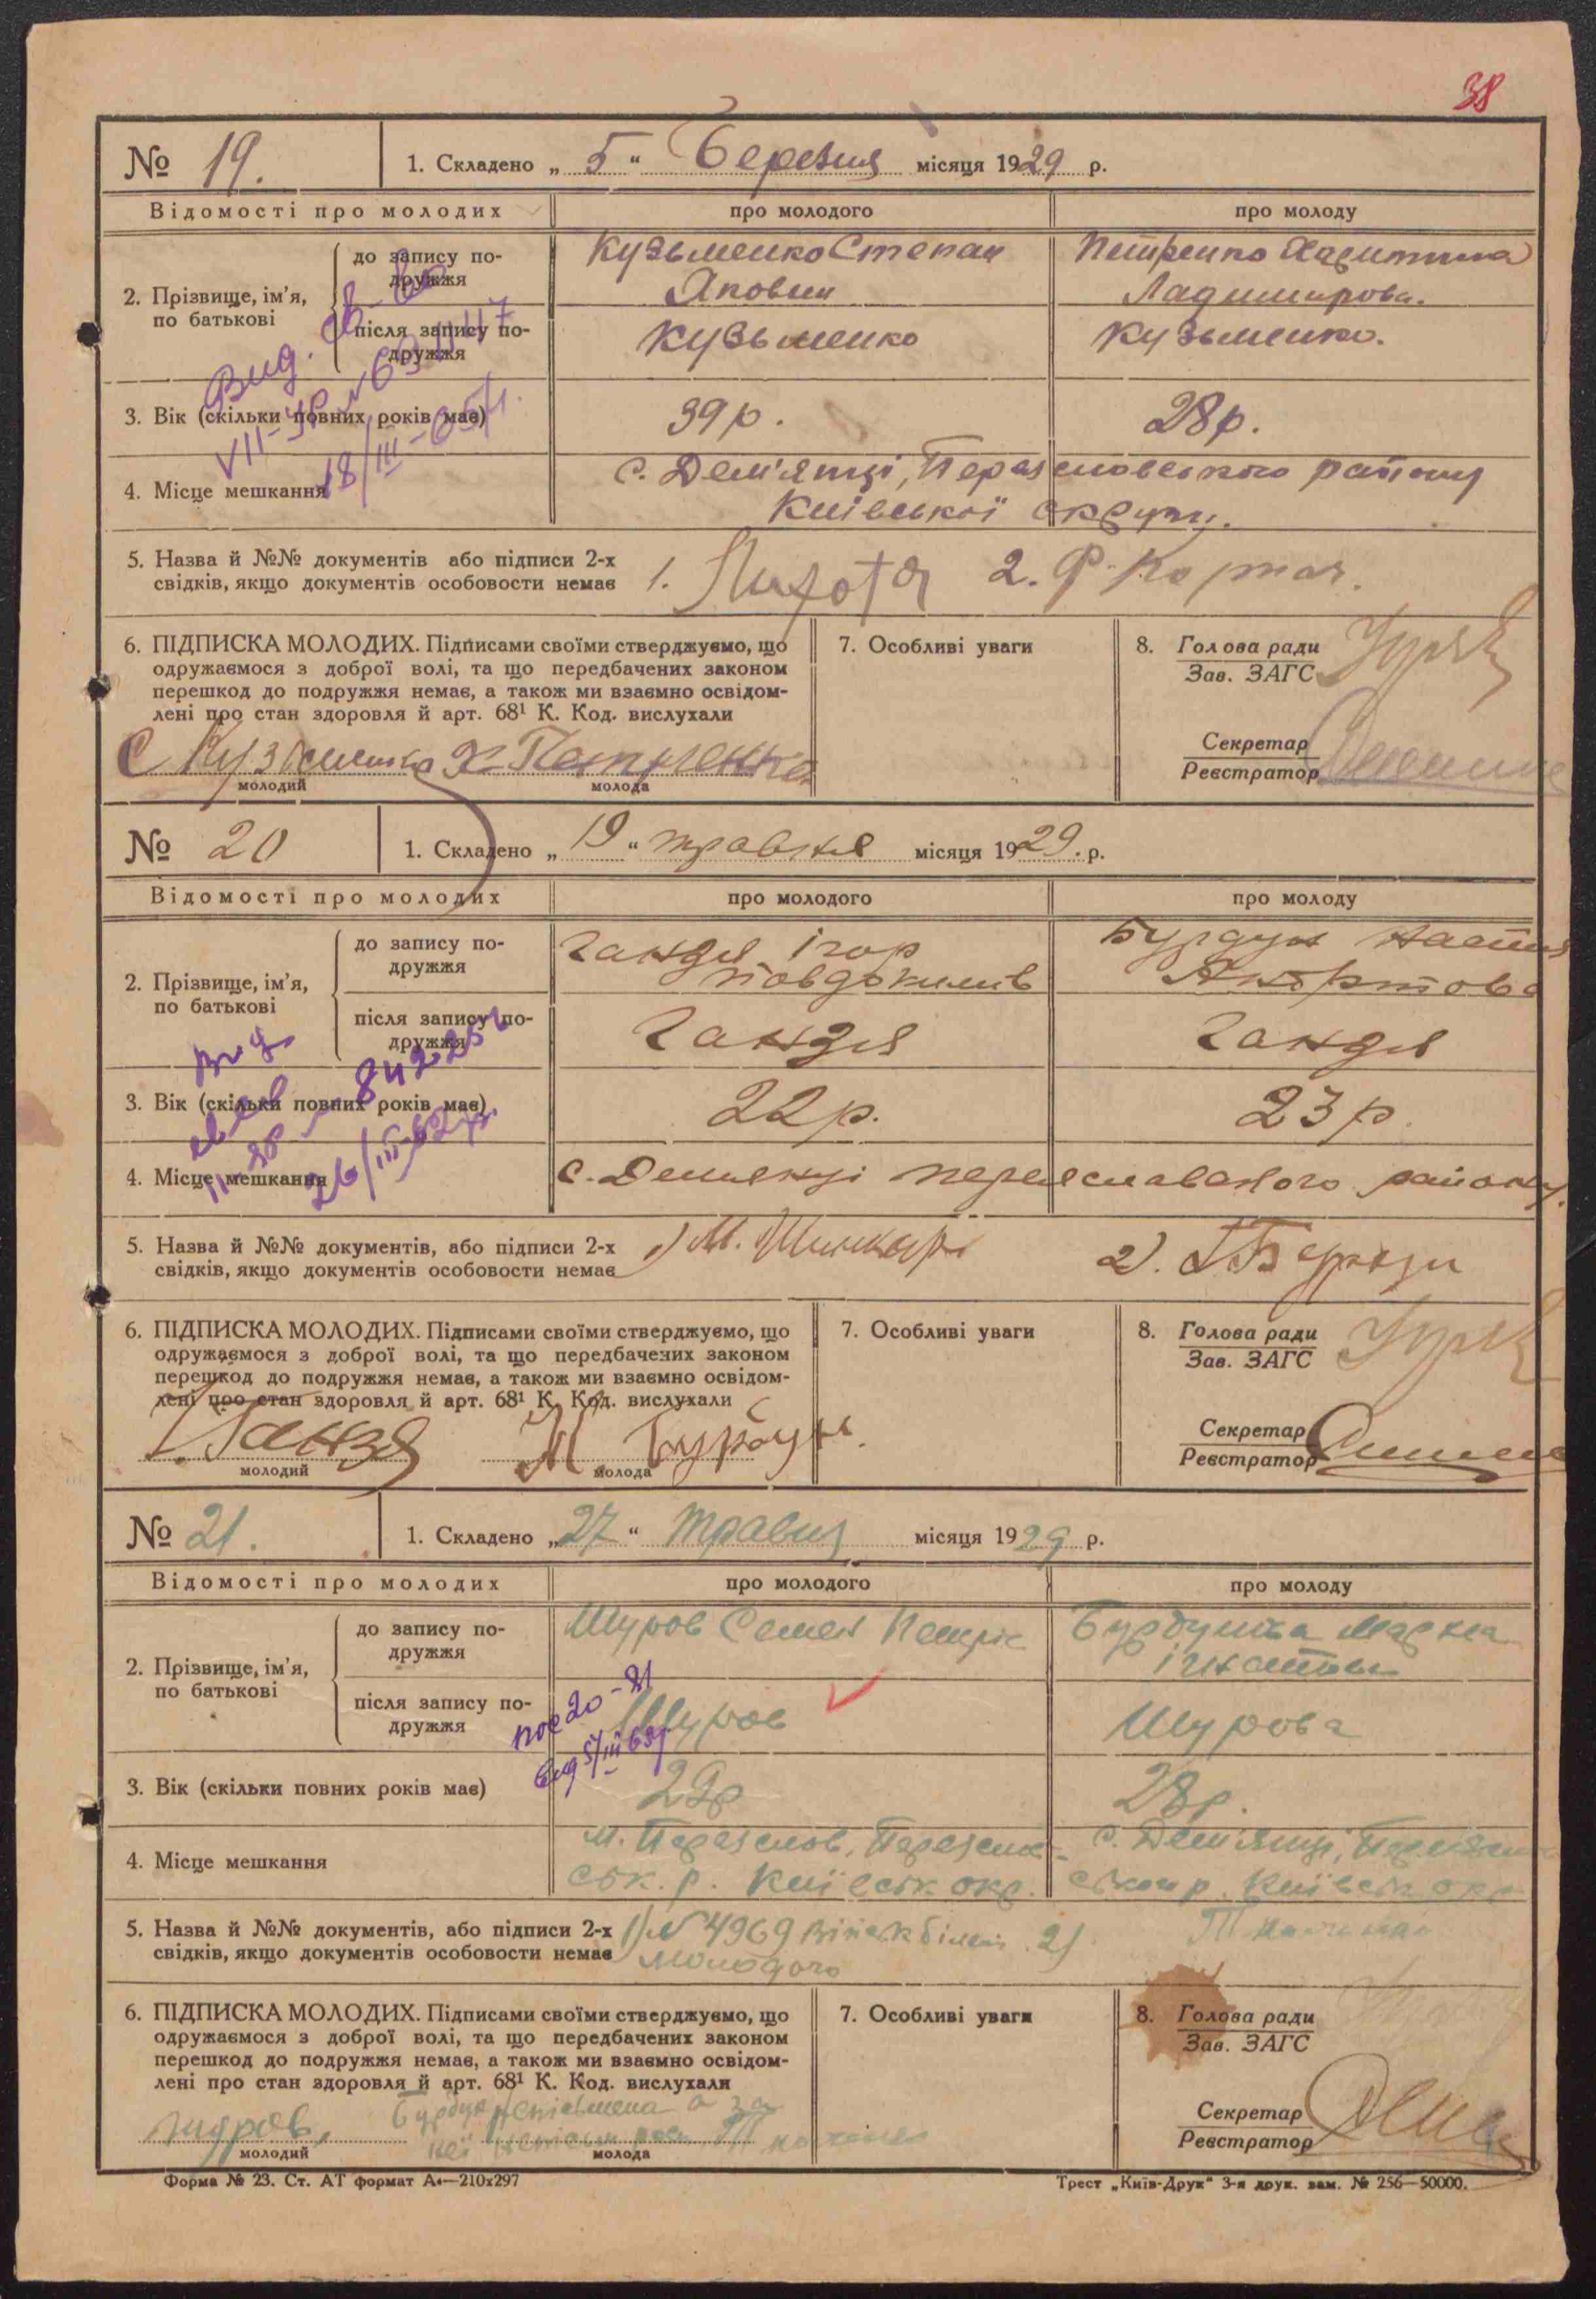 38
№ 19. 1. Складено „ 5 “ Березня місяця 1929 р.
Відомості про молодих про молодого про молоду
2. Прізвище, ім’я, по батькові
до запису подружжя Кузьменко Степан Яковин Петренко Харитина Ладимирова.
після запису подружжя Кузьменко Кузьменко.
3. Вік (скільки повних років має) 39 р. 28 р.
4. Місце мешкання с. Дем'янці, Переяславського району
Київської округи.
Вид.
18/III-65 р.
5. Назва й №№ документів або підписи 2-х 1. 2. Ф.
свідків, якщо документів особовости немає
6. ПІДПИСКА МОЛОДИХ. Підписами своїми стверджуємо, що
одружаємося з доброї волі, та що передбачених законом
перешкод до подружжя немає, а також ми взаємно освідом-
лені про стан здоров'я й арт. 68¹ К. Код. вислухали
7. Особливі уваги
8. Голова ради
Зав. ЗАГС
Секретар
Реєстратор
С Кузьменко Х Петренко
молодий молода
№ 20 1. Складено „ 19 “ травня місяця 1929. р.
Відомості про молодих про молодого про молоду
2. Прізвище, ім’я, по батькові
до запису подружжя Гандзя Ігор Бурдун Настя
після запису подружжя Гандзя Гандзя
3. Вік (скільки повних років має) 22 р. 23 р.
4. Місце мешкання с. Демянці переяславського району.
Вид
26/III-62 р.
5. Назва й №№ документів, або підписи 2-х 1) М. Шинкар 2).
свідків, якщо документів особовости немає
6. ПІДПИСКА МОЛОДИХ. Підписами своїми стверджуємо, що
одружаємося з доброї волі, та що передбачених законом
перешкод до подружжя немає, а також ми взаємно освідом-
лені про стан здоровля й арт. 68¹ К. Код. вислухали
7. Особливі уваги
8. Голова ради
Зав. ЗАГС
Секретар
Реєстратор
І. Гандзя Н Бурдун.
молодий молода
№ 21. 1. Складено „ 27 “ Травня місяця 1929 р.
Відомості про молодих про молодого про молоду
2. Прізвище, ім’я, по батькові
до запису подружжя Шуров Семен Петрів Марія
після запису подружжя Шуров Шурова
3. Вік (скільки повних років має) 29 р 28 р.
4. Місце мешкання м. Переяслов, Переяслов- с. Дем'янці,
ськ. р. Київськ окр. Київськ окр
5. Назва й №№ документів, або підписи 2-х 1) № 4969 Військ білет 2)
свідків, якщо документів особовости немає молодого
6. ПІДПИСКА МОЛОДИХ. Підписами своїми стверджуємо, що
одружаємося з доброї волі, та що передбачених законом
перешкод до подружжя немає, а також ми взаємно освідом-
лені про стан здоровля й арт. 68¹ К. Код. вислухали
7. Особливі уваги
8. Голова ради
Зав. ЗАГС
Секретар
Реєстратор
молодий молода
Форма № 23. Ст. АТ формат А₄—210х297 Трест „Київ-Друк“ 3-я друк. зам. № 256—50000.